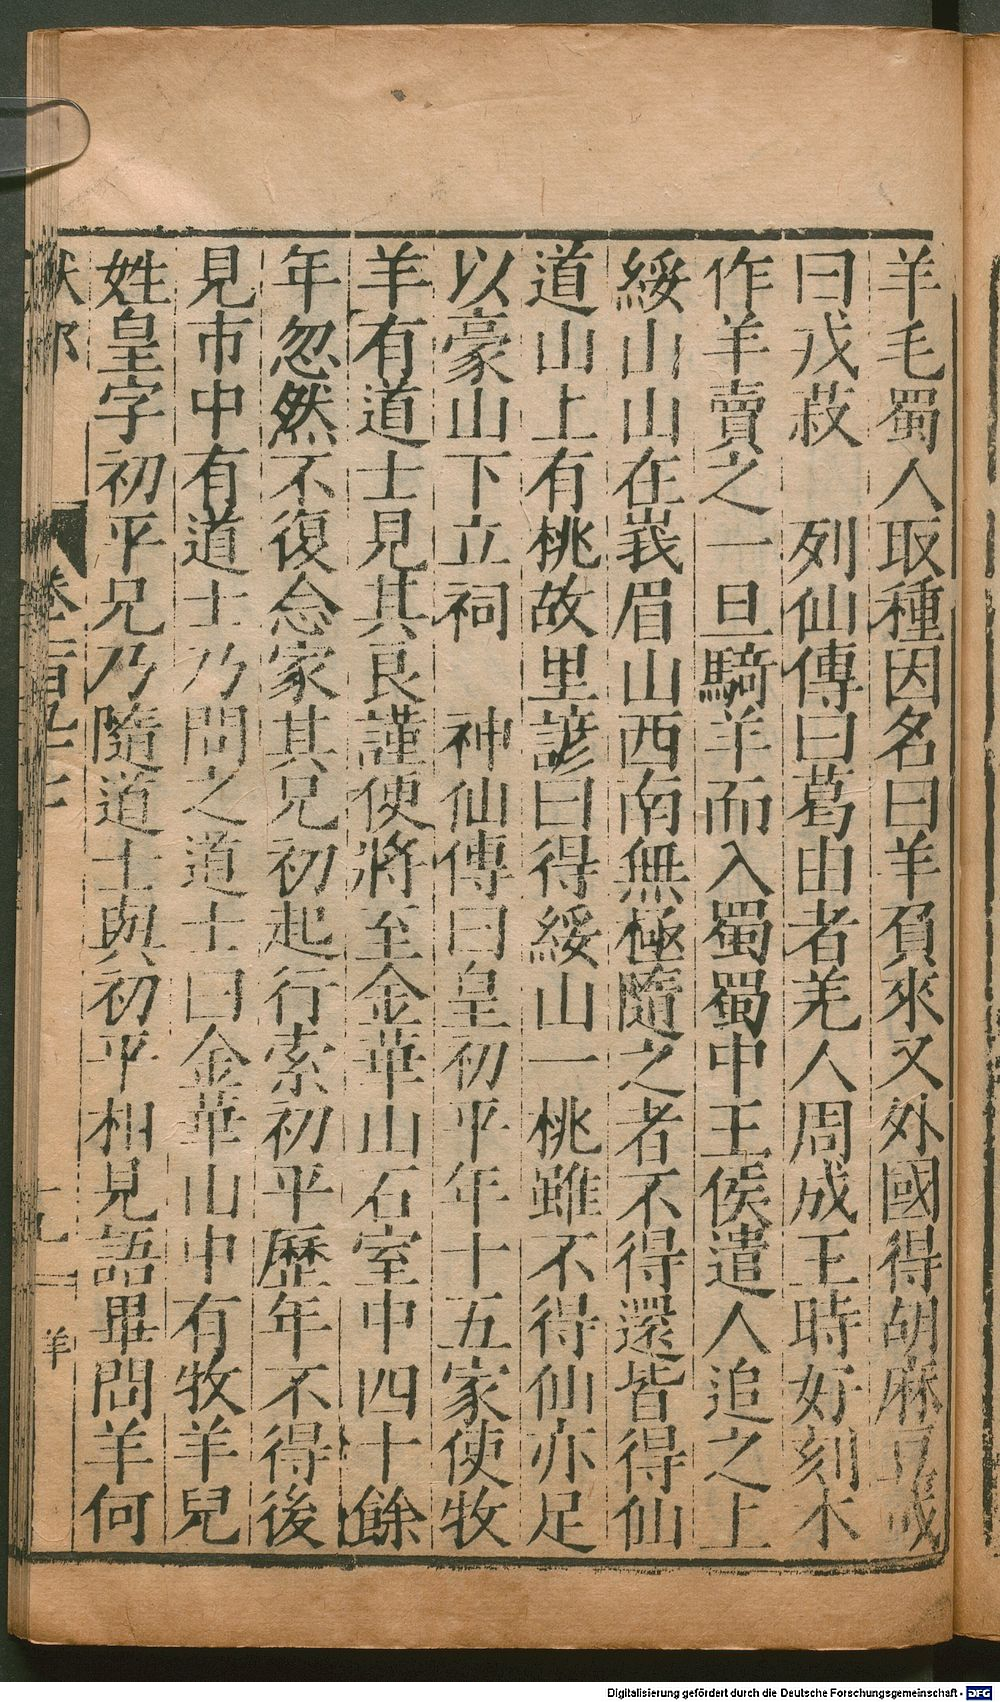 羊毛蜀人取種因名曰羊負來又外國得胡麻豆或
曰戎菽　列仙傳曰葛由者羌人周成王時好刻木
作羊賣之一旦騎羊而入蜀蜀中王侯遣人追之上
綏山山在峩眉山西南無極隨之者不得還皆得仙
道山上有桃故里諺曰得綏山一桃雖不得仙亦足
以豪山下立祠　神仙傳曰皇初平年十五家使牧
羊有道士見其良謹使將至金華山石室中四十餘
年忽然不復念家其兄初起行索初平歷年不得後
見市中有道士乃問之道士曰金華山中有牧羊兒
姓皇字初平兄乃隨道士與初平相見語畢問羊何
獸部
卷一百九十
十九
羊
Digitalisierung gefördert durch die Deutsche Forschungsgemeinschaft - DFG